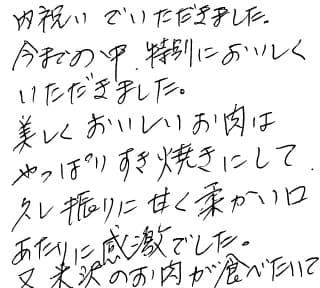 内祝いでいただきました。
今までの中、特別においしく
いただきました。
美しくおいしいお肉は
やっぱりすき焼きにして
久し振りに甘く柔かい口
あたりに感激でした。
又米沢のお肉が食べたいて